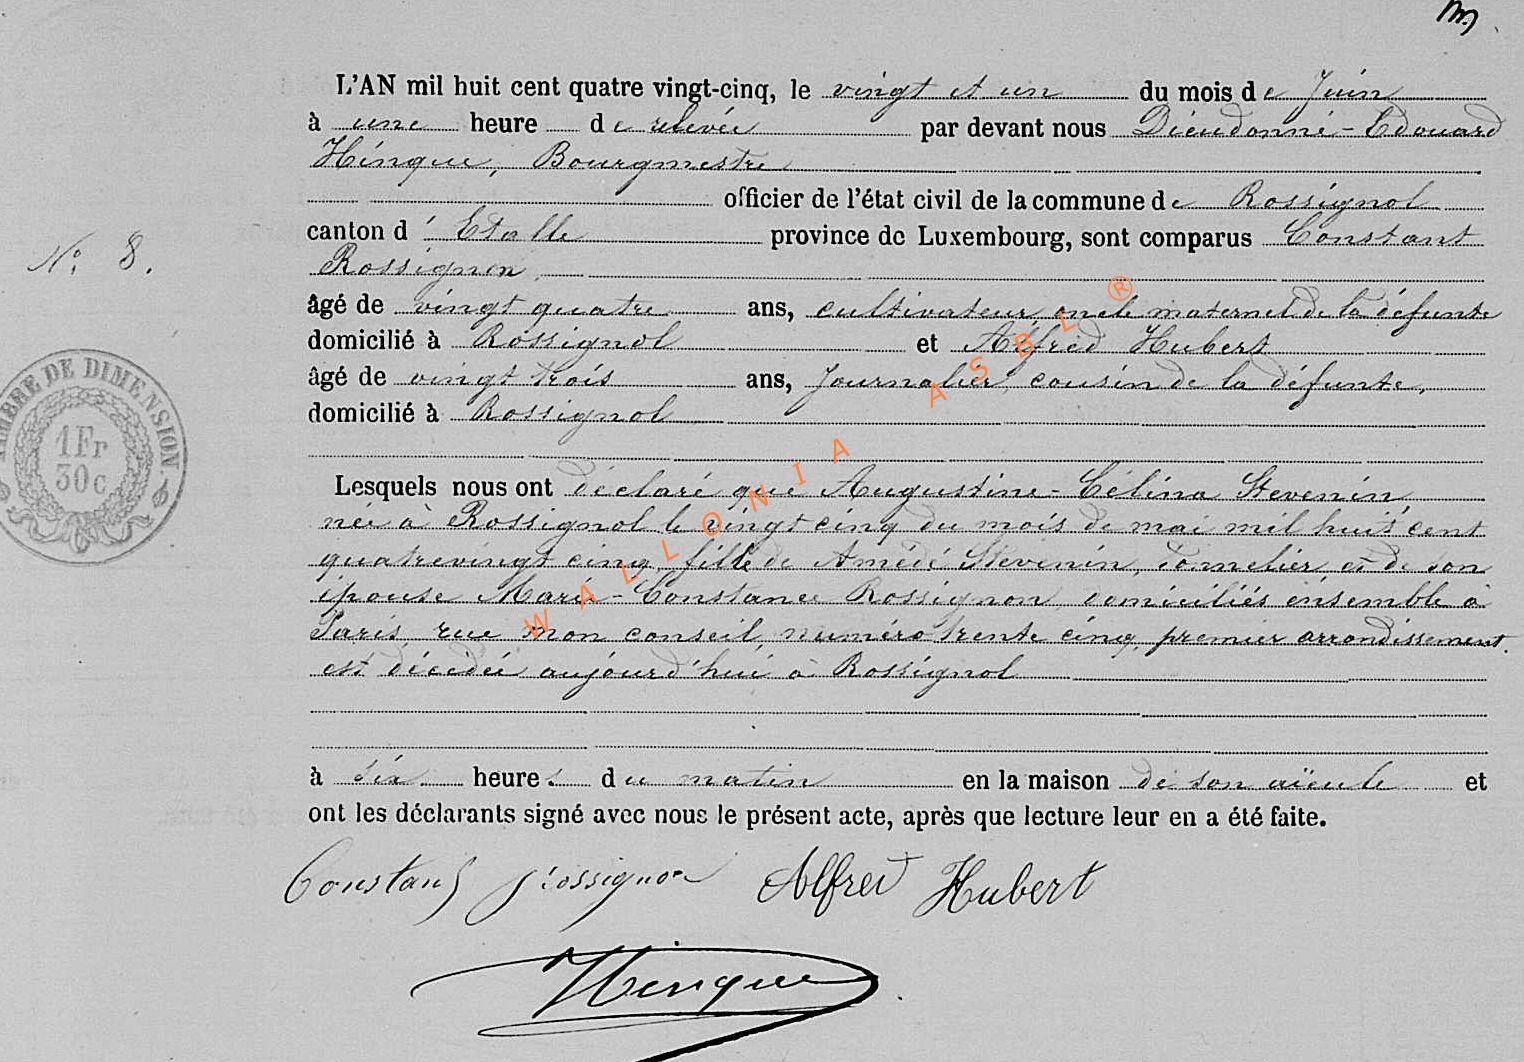 L'AN mil huit cent quatre vingt-cinq, le vingt et un du mois de Juin
à une heure de relevée par devant nous Dieudonné-Edouard
Hinque, Bourgmestre
officier de l'état civil de la commune de Rossignol
canton d'Etalle province de Luxembourg, sont comparus Constant
Rossignon
N.° 8.
âgé de vingt quatre ans, cultivateur, oncle maternel de la défunte
domicilié à Rossignol et Alfred Hubert
âgé de vingt trois ans, Journalier, cousin de la défunte,
domicilié à Rossignol
TIMBRE DE DIMENSION.
1 Fr
30 c
Lesquels nous ont déclaré que Augustine-Célina Stevenin,
née à Rossignol le vingt cinq du mois de mai mil huit cent
quatrevingt cinq, fille de Amédé Stevenin, Tonnelier et de son
épouse Marie-Constance Rossignon, domiciliés ensemble à
Paris, rue mon conseil, numéro trente cinq, premier arrondissement.
est décédée aujourd'hui à Rossignol
à six heures du matin en la maison de son aïeule et
ont les déclarants signé avec nous le présent acte, après que lecture leur en a été faite.
Constant Rossignon Alfred Hubert
Hinque
WALLONIA ASBL ®